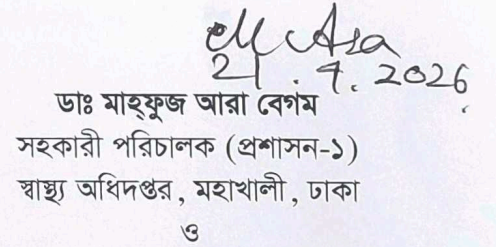 21.4.2026
ডাঃ মাহ্‌ফুজ আরা বেগম
সহকারী পরিচালক (প্রশাসন-১)
স্বাস্থ্য অধিদপ্তর, মহাখালী, ঢাকা
ও